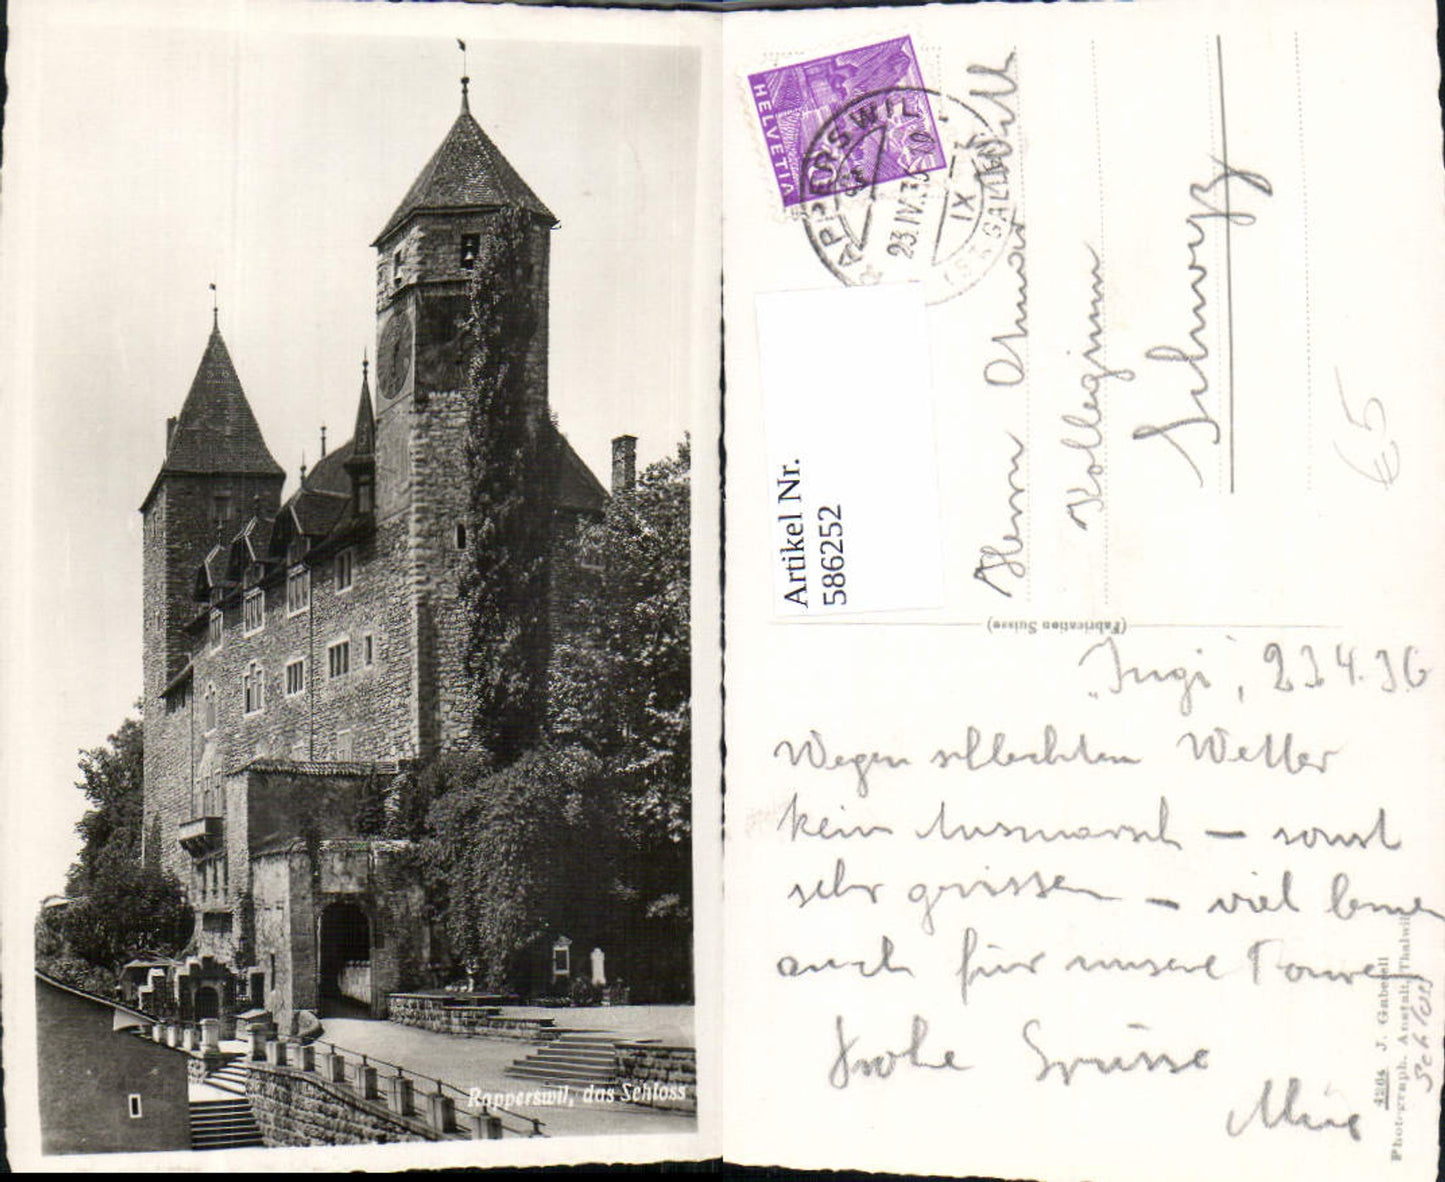 Rapperswil, das Schloss
HELVETIA
RAPPERSWIL
23.IV.36
IX
(ST. GALLEN)
Artikel Nr.
586252
Herrn
Kollegium
Schwyz
€5
(Fabrication Suisse)
23.4.36
Wegen schlechtem Wetter
kein Ausmarsch – sonst
sehr – viel
auch für unsere
Frohe Grüsse
4264 J. Gaberell
Photograph. Anstalt, Thalwil